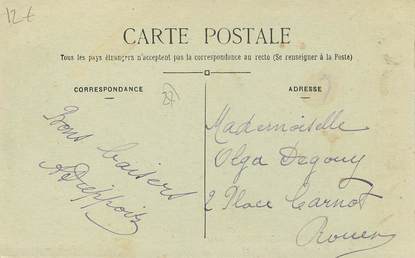 12€
CARTE POSTALE
Tous les pays étrangers n'acceptent pas la correspondance au recto (Se renseigner à la Poste)
CORRESPONDANCE
ADRESSE
Bons baisers
Mademoiselle
Olga Degouy
2 Place Carnot
Rouen